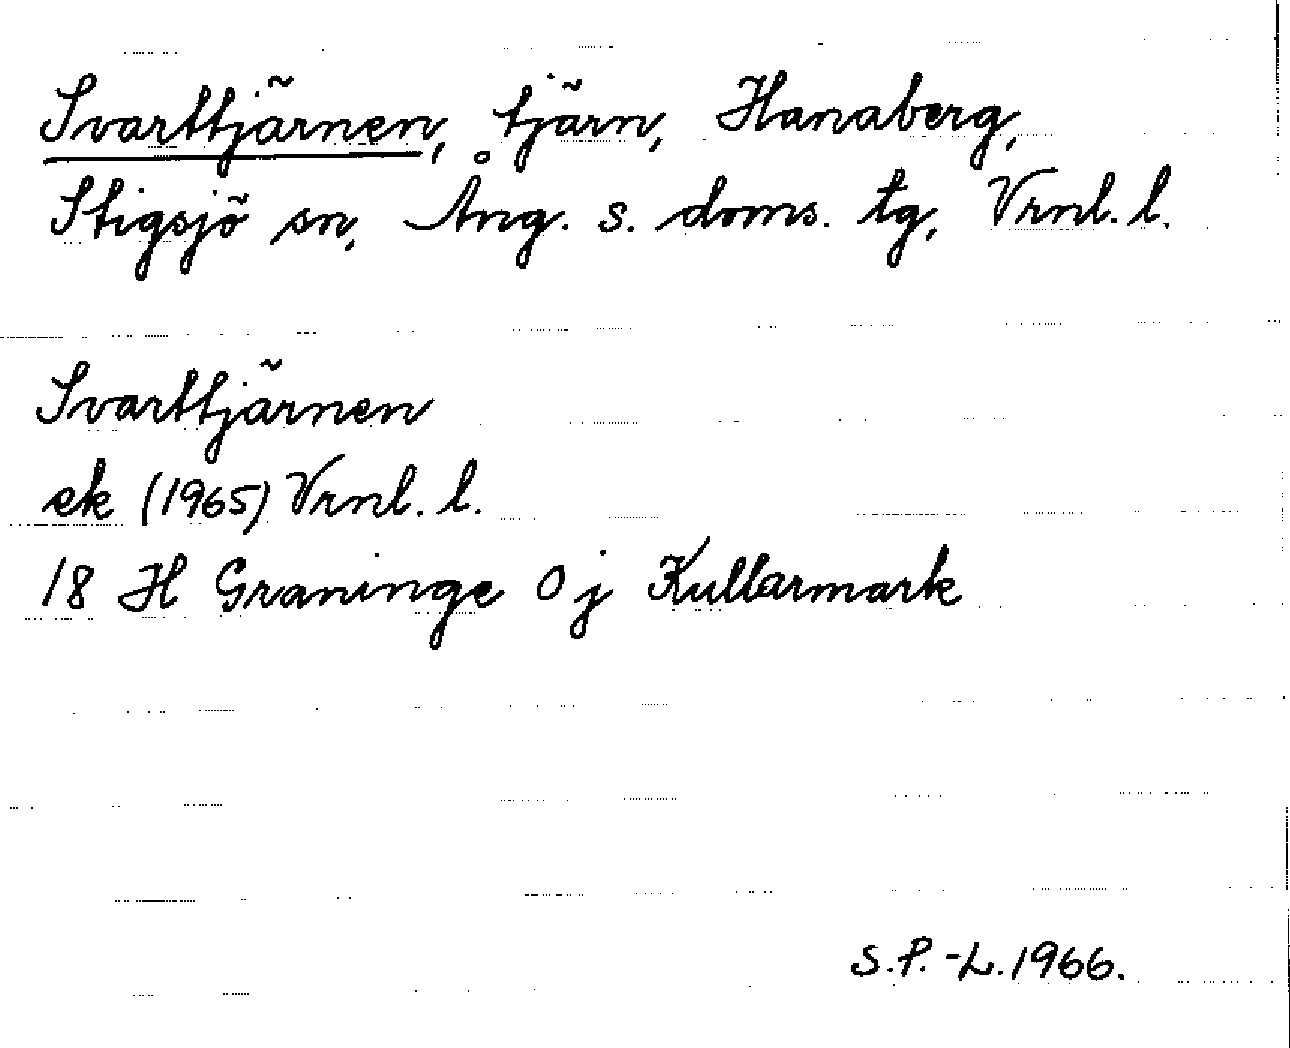 Svarttjärnen, tjärn, Hanaberg,
Stigsjö sn, Ång. s. doms. tg, Vrnl. l.
Svarttjärnen
ek (1965) Vrnl. l.
18 H Graninge 0 j Kullarmark
S.P.-L. 1966.